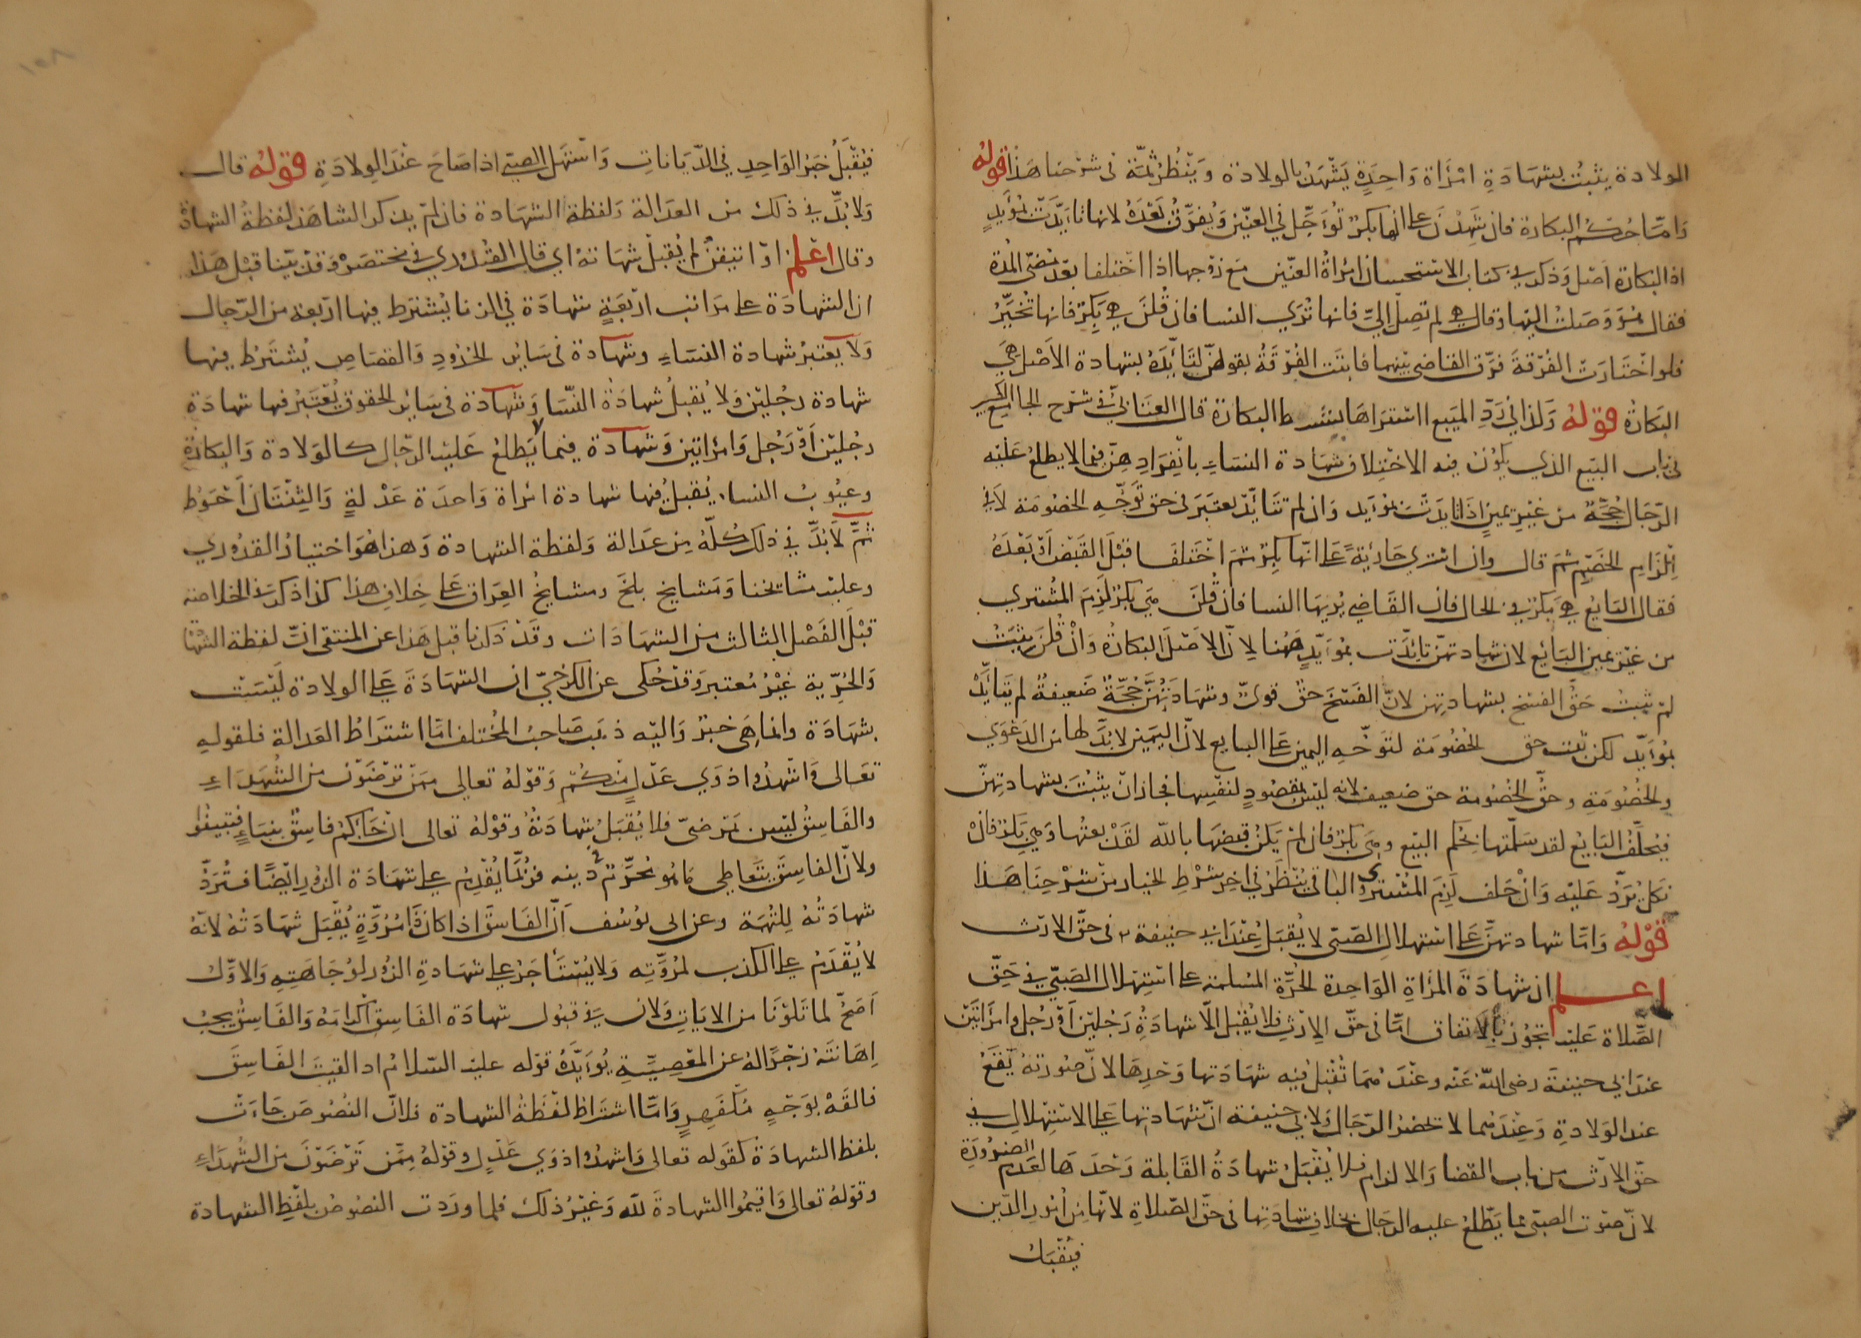 الولادة يثبت بشهادة امرأة واحدة يشهدن بالولادة وينظر ثمة فى شرحنا هذا قوله
واما حكم البكارة فان شهدن على انها بكر يؤجل في العنين ويفرق بعده لانها تايدت بمؤيد
اذ البكارة اصل وذكر في كتاب الاستحسان امرأة العنين مع زوجها اذا اختلفا بعد مضى المدة
فقال هو وصلت اليها وقالت هي لم يصل الي فانها ترى النسا فان قلن هي بكر فانها تخير
فلو اختارت الفرقة فرق القاضى بينهما فاثبتت الفرقة بقولهن لتايده بشهادة الاصل هي
البكارة قوله وكذا في رد المبيع اشتراها بشرط البكارة قال العتابى في شرح الجامع الكبير
فى باب البيع الذي يكون فيه الاختلاف شهادة النساء بانفرادهن فيما لا يطلع عليه
الرجال حجة من غير يمين اذا تايدت بمؤيد وان لم تتايد يعتبر فى حق توجه الخصومة لا في
الزام الخصم ثم قال وان اشترى جارية على انها بكر ثم اختلفا قبل القبض او بعده
فقال البايع هي بكر في الحال فان القاضي يريها النسا فان قلن هي بكر لزم المشترى
من غير يمين البايع لان شهادتهن تايدت بمؤيد ههنا لان الاصل البكارة وان قلن ثيب
لم يثبت حق الفسخ بشهادتهن لان الفسخ حق قوى وشهادتهن حجة ضعيفة لم تتايد
بمؤيد لكن تثبت حق الخصومة لتوجه اليمين على البايع لان اليمين لابد لها من الدعوى
والخصومة وحق الخصومة حق ضعيف لانه ليس بمقصود لنفسها فجاز ان يثبت بشهادتهن
فيحلف البايع لقد سلمتها بحكم البيع وهي بكر فان لم يكن قبضها بالله لقد بعتها وهي بكر فان
نكل ترد عليه وان حلف لزم المشترى الباقى ينظر في اخر شرط الخيار من شرحنا هذا
قوله واما شهادتهن على استهلال الصبى لا يقبل عند ابي حنيفة فى حق الارث
اعلم ان شهادة المرأة الواحدة الحرة المسلمة على استهلال الصبي في حق
الصلاة عليه تجوز بالاتفاق اما فى حق الارث فلا يقبل الا شهادة رجلين او رجل وامرأتين
عند ابي حنيفة رضى الله عنه وعندهما تقبل فيه شهادتها وحدها لان صورته يقع
عند الولادة وعندهما لا تحضر الرجال ولابي حنيفة ان شهادتها على الاستهلال في
حق الارث من باب القضا والالزام فلا يقبل شهادة القابلة وحدها لعدم الضرورة
لان صوت الصبى مما يطلع عليه الرجال بخلاف شهادتها فى حق الصلاة لانها من امور الدين
فيقبل
فيقبل خبر الواحد في الديانات واستهل الصبي اذا صاح عند الولادة قوله قال
ولا بد في ذلك من العدالة ولفظة الشهادة فان لم يذكر الشاهد لفظة الشهادة
وقال اعلم او اتيقن لم يقبل شهادته اي قال القدوري في مختصره وقد بينا قبل هذا
ان الشهادة على مراتب اربعة شهادة في الزنا يشترط فيها اربعة من الرجال
ولا يعتبر شهادة النساء وشهادة فى سائر الحدود والقصاص يشترط فيها
شهادة رجلين ولا يقبل شهادة النسا وشهادة فى سائر الحقوق يعتبر فيها شهادة
رجلين او رجل وامرأتين وشهادة فيما لا يطلع عليه الرجال كالولادة والبكارة
وعيوب النساء يقبل فيها شهادة امرأة واحدة عدلة والثنتان احوط
ثم لابد في ذلك كله من عدالة ولفظة الشهادة وهذا هو اختيار القدوري
وعليه مشايخنا ومشايخ بلخ ومشايخ العراق على خلاف هذا كذا ذكر في الخلاصة
قبل الفصل الثالث من الشهادات وقد ذكرنا قبل هذا عن المنتقى ان لفظة الشهادة
والحرية غير معتبر وقد حكى عن الكرخي ان الشهادة على الولادة ليست
بشهادة وانما هي خبر واليه ذهب صاحب المختلف اما اشتراط العدالة فلقوله
تعالى واشهدوا ذوي عدل منكم وقوله تعالى ممن ترضون من الشهداء
والفاسق ليس بمرضى فلا يقبل شهادته وقوله تعالى ان جاءكم فاسق بنباء فتبينوا
ولان الفاسق يتعاطى ما هو محرم دينه فربما يقدم على شهادة الزور ايضا فترد
شهادته للتهمة وعن ابى يوسف ان الفاسق اذا كان ذا مروة يقبل شهادته لانه
لا يقدم على الكذب لمروته ولا يستأجر على شهادة الزور لوجاهته والاول
اصح لما تلونا من الايات ولان في قبول شهادة الفاسق اكرامه والفاسق يجب
اهانته زجرا له عن المعصية يؤيده قوله عليه السلام اذا لقيت الفاسق
فالقه بوجه مكفهر واما اشتراط لفظة الشهادة فلان النصوص جاءت
بلفظ الشهادة كقوله تعالى واشهدوا ذوي عدل وقوله ممن ترضون من الشهداء
وقوله تعالى واقيموا الشهادة لله وغير ذلك فلما وردت النصوص بلفظ الشهادة